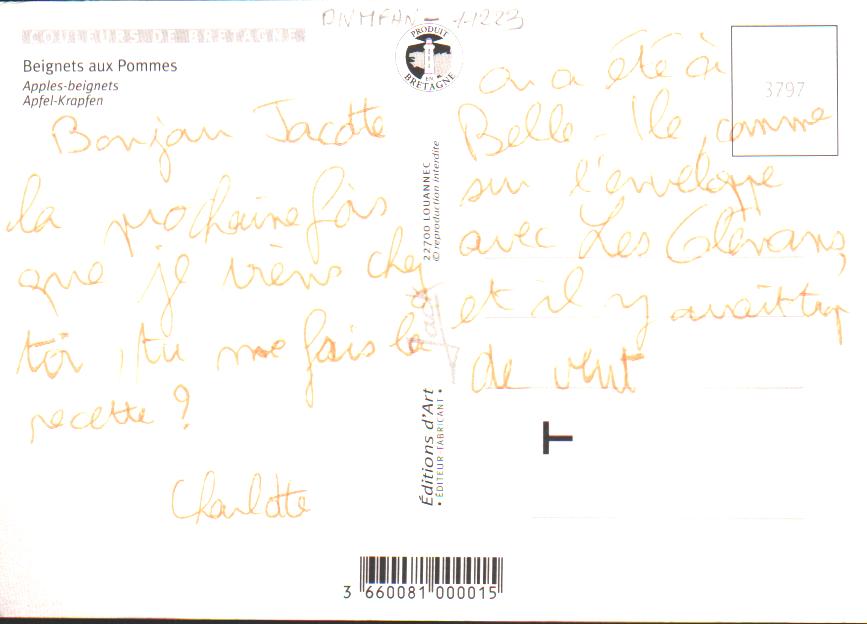 COULEURS DE BRETAGNE
Beignets aux Pommes
Apples-beignets
Apfel-Krapfen
Bonjour Jacotte
la prochaine fois
que je viens chez
toi, tu me fais la
recette ?
Charlotte
PRODUIT
EN
BRETAGNE
22700 LOUANNEC
© reproduction interdite
Éditions d'Art
• ÉDITEUR-FABRICANT •
3797
on a été à
Belle-Ile, comme
sur l'enveloppe
avec Les
et il y avait trop
de vent
T
3 660081 000015